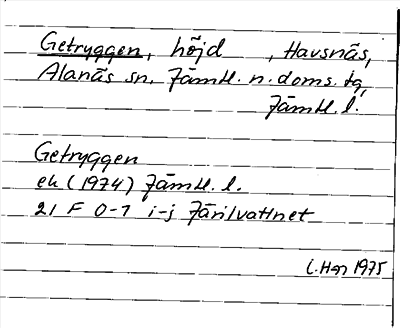 Getryggen, höjd , Havsnäs,
Alanäs sn. Jämtl. n. doms. tg,
Jämtl. l.
Getryggen
ek (1974) Jämtl. l.
21 F 0-1 i-j Järilvattnet
1975